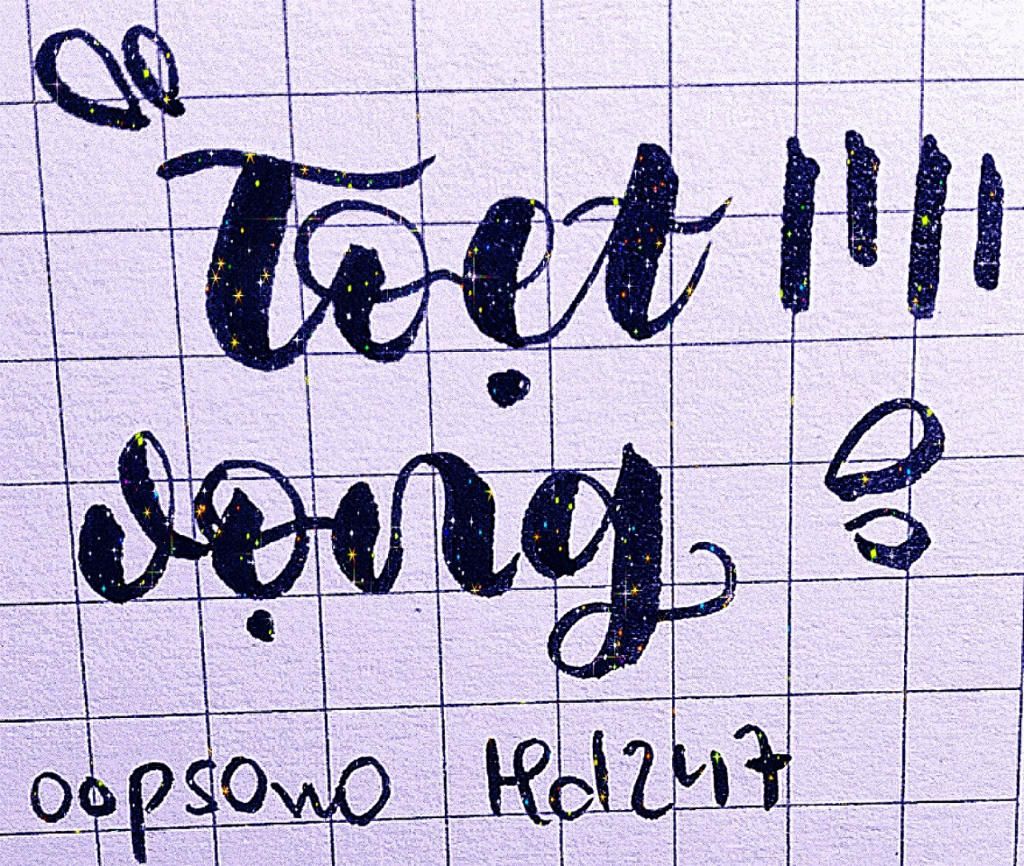 Toẹt
vọng
oopsOwO Hd247